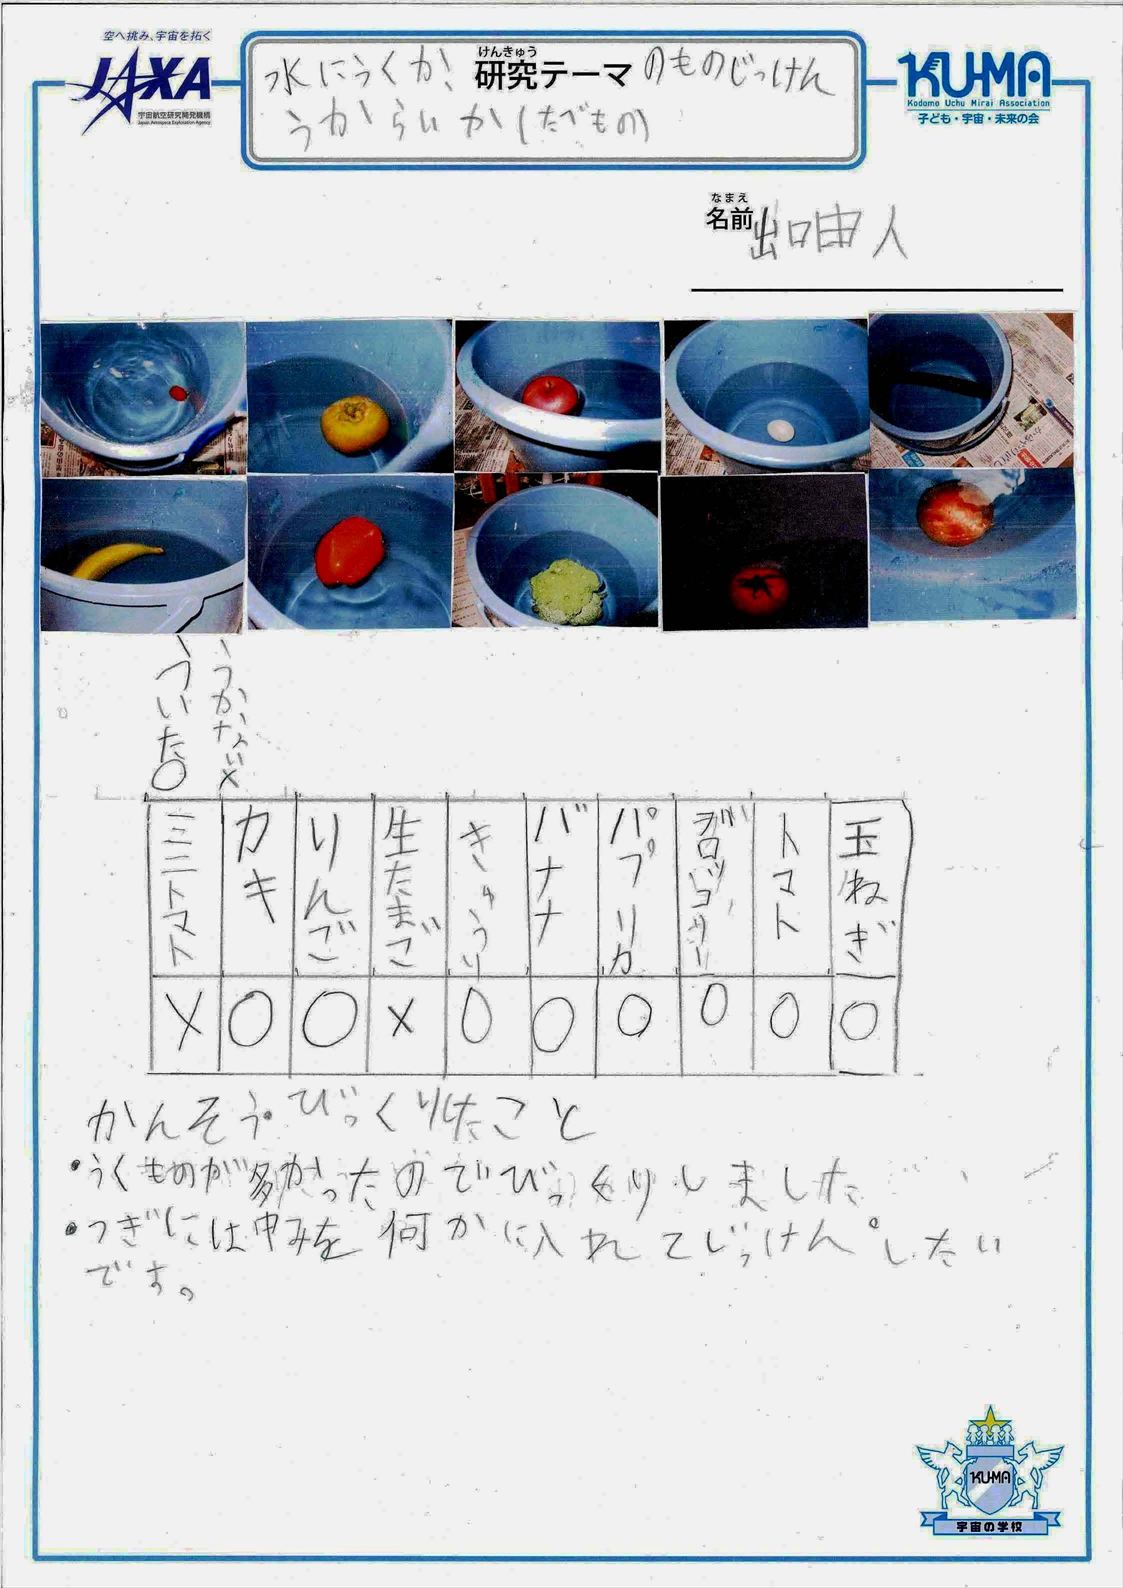 空へ挑み、宇宙を拓く
JAXA
宇宙航空研究開発機構
Japan Aerospace Exploration Agency
けんきゅう
研究テーマ
水にうくか、のものじっけん
うからいか(たべもの)
KU-MA
Kodomo Uchu Mirai Association
子ども・宇宙・未来の会
なまえ
名前 出口由人
ういた○
うかない×
ミニトマト カキ りんご 生たまご きゅうり バナナ パプリカ トマト 玉ねぎ
× ○ ○ × ○ ○ ○ ○ ○ ○
かんそう・びっくりしたこと
・うくものが多かったのでびっくりしました
・つぎには中みを何かに入れてじっけんしたい
です。
KU-MA
宇宙の学校